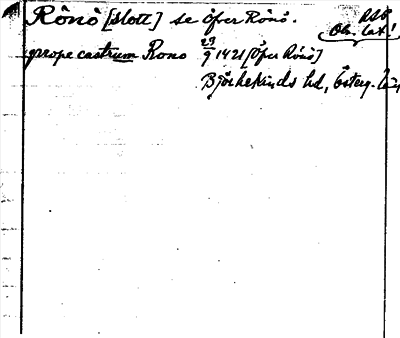 Rönö [slott] se Öfver Rönö. RSB
Obs. Lat!
prope castrum Rono 23/9 1421 [Öfver Rönö]
Björkekinds hd, Österg. län